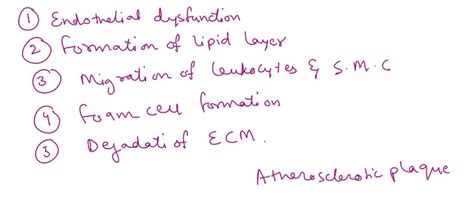 ① Endothelial dysfunction
② Formation of lipid layer
③ Migration of leukocytes & S.M.C
④ Foam cell formation
③ Degadati of ECM.
Atherosclerotic plaque